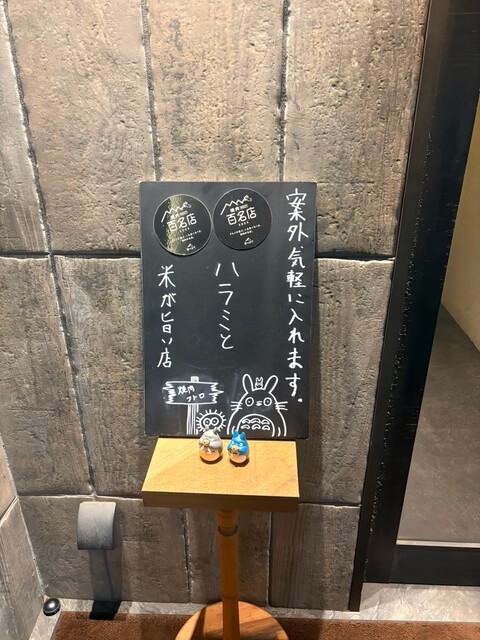 案外気軽に入れます。
ハラミと
米が旨い店
焼肉
百名店
焼肉
百名店
焼肉